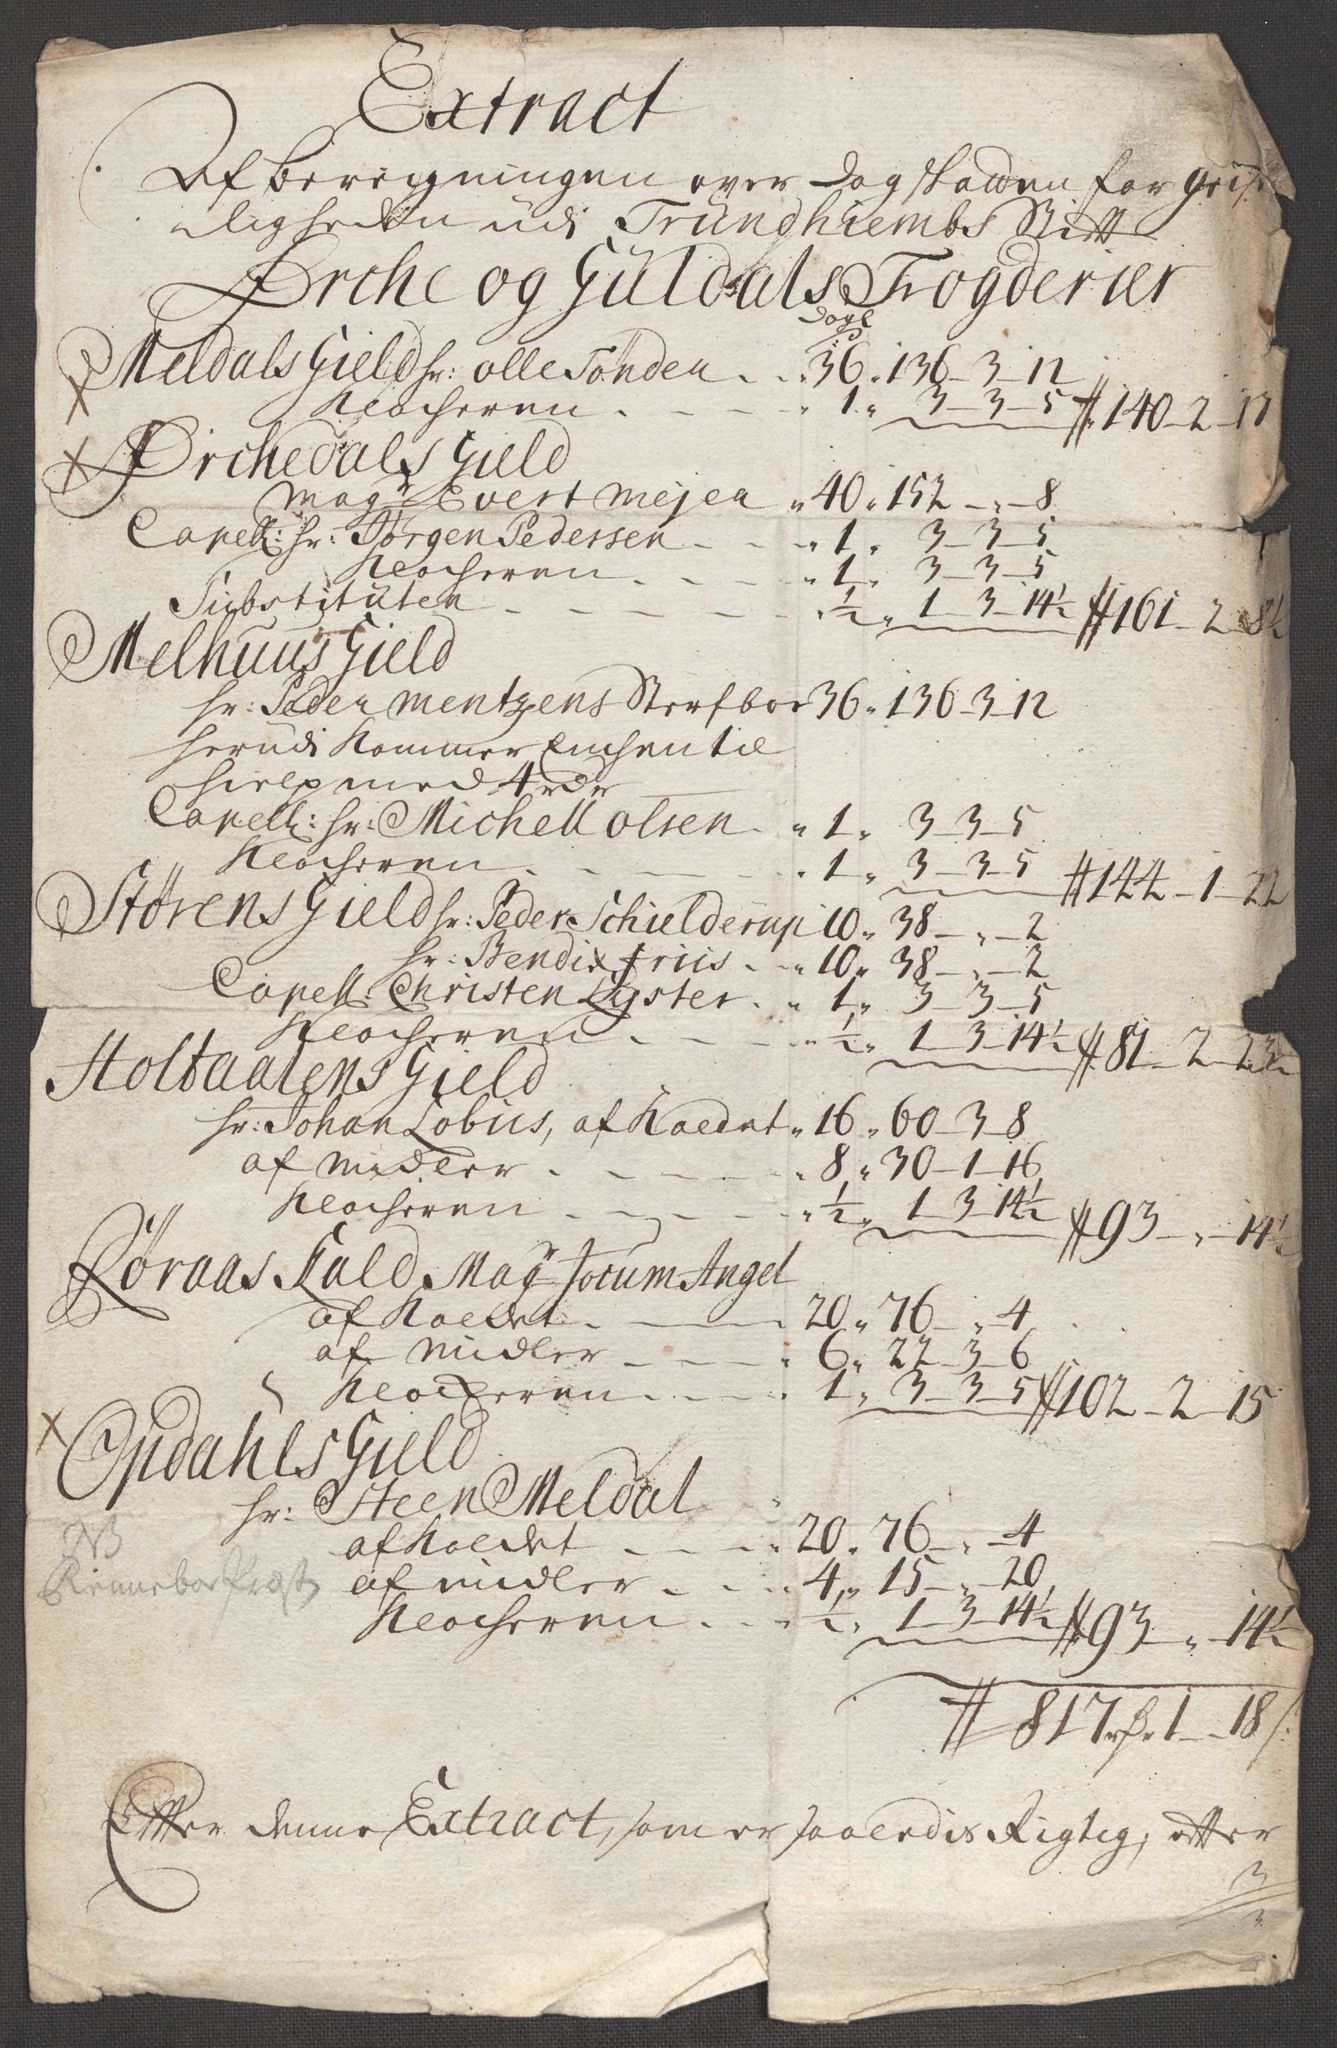 Extract
Af beregningen over Dag Skatten for Geist
ligheden udi Trundhiembs Stift
Ørche og Guldals Fogderier
dagl
Meldals Gield hr: olle Tønder - - 36 " 136 - 3 - 12
Klocheren - - - " 1 " 3 - 3 - 5 # 140 - 2 - 17
Ørchedals Gield
Magr Evert Mejer " 40 " 152 - " - 8
Capell: hr: Jørgen Pedersen - - - " 1 " 3 - 3 - 5
Klocheren - - - " 1 " 3 - 3 - 5
Substituten - - - " ½ " 1 - 3 - 14½ # 161 - 2 - 8½
Melhuus Gield
hr: Peder Mentzens Sterfboe 36 " 136 - 3 - 12
herudi kommer Enchen til
hielp med 4 rdr
Capell: hr: Michell olsen - " 1 " 3 - 3 - 5
Klocheren - - - " 1 " 3 - 3 - 5 # 144 - 1 - 22
Størens Gield hr: Peder Schielderup 10 " 38 - " - 2
hr: Bendix friis - - " 10 " 38 - " - 2
Capell: Christen Lyster - " 1 " 3 - 3 - 5
Klocheren - - - " ½ " 1 - 3 - 14½ # 81 - 2 - 23½
Holtaalens Gield
hr: Johan Lobius, af Kaldet " 16 " 60 - 3 - 8
af Midler - - - " 8 " 30 - 1 - 16
Klocheren - - - " ½ " 1 - 3 - 14½ # 93 - " - 14½
Røraas Kald Magr Jocum Angel
af Kaldet - - - 20 " 76 - " - 4
af Midler - - - " 6 " 22 - 3 - 6
Klocheren - - - " 1 " 3 - 3 - 5 # 102 - 2 - 15
Opdahls Gield
hr: Steen Meldal
af Kaldet - - - 20 " 76 - " - 4
NB
Renneboe Præst
af midler - - - 4 " 15 - " - 20
Klocheren - - ½ " 1 - 3 - 14½ # 93 - " - 14½
# 817 " 1 - 18 s.
Efter denne Extract, som er saaledis Rigtig, efter